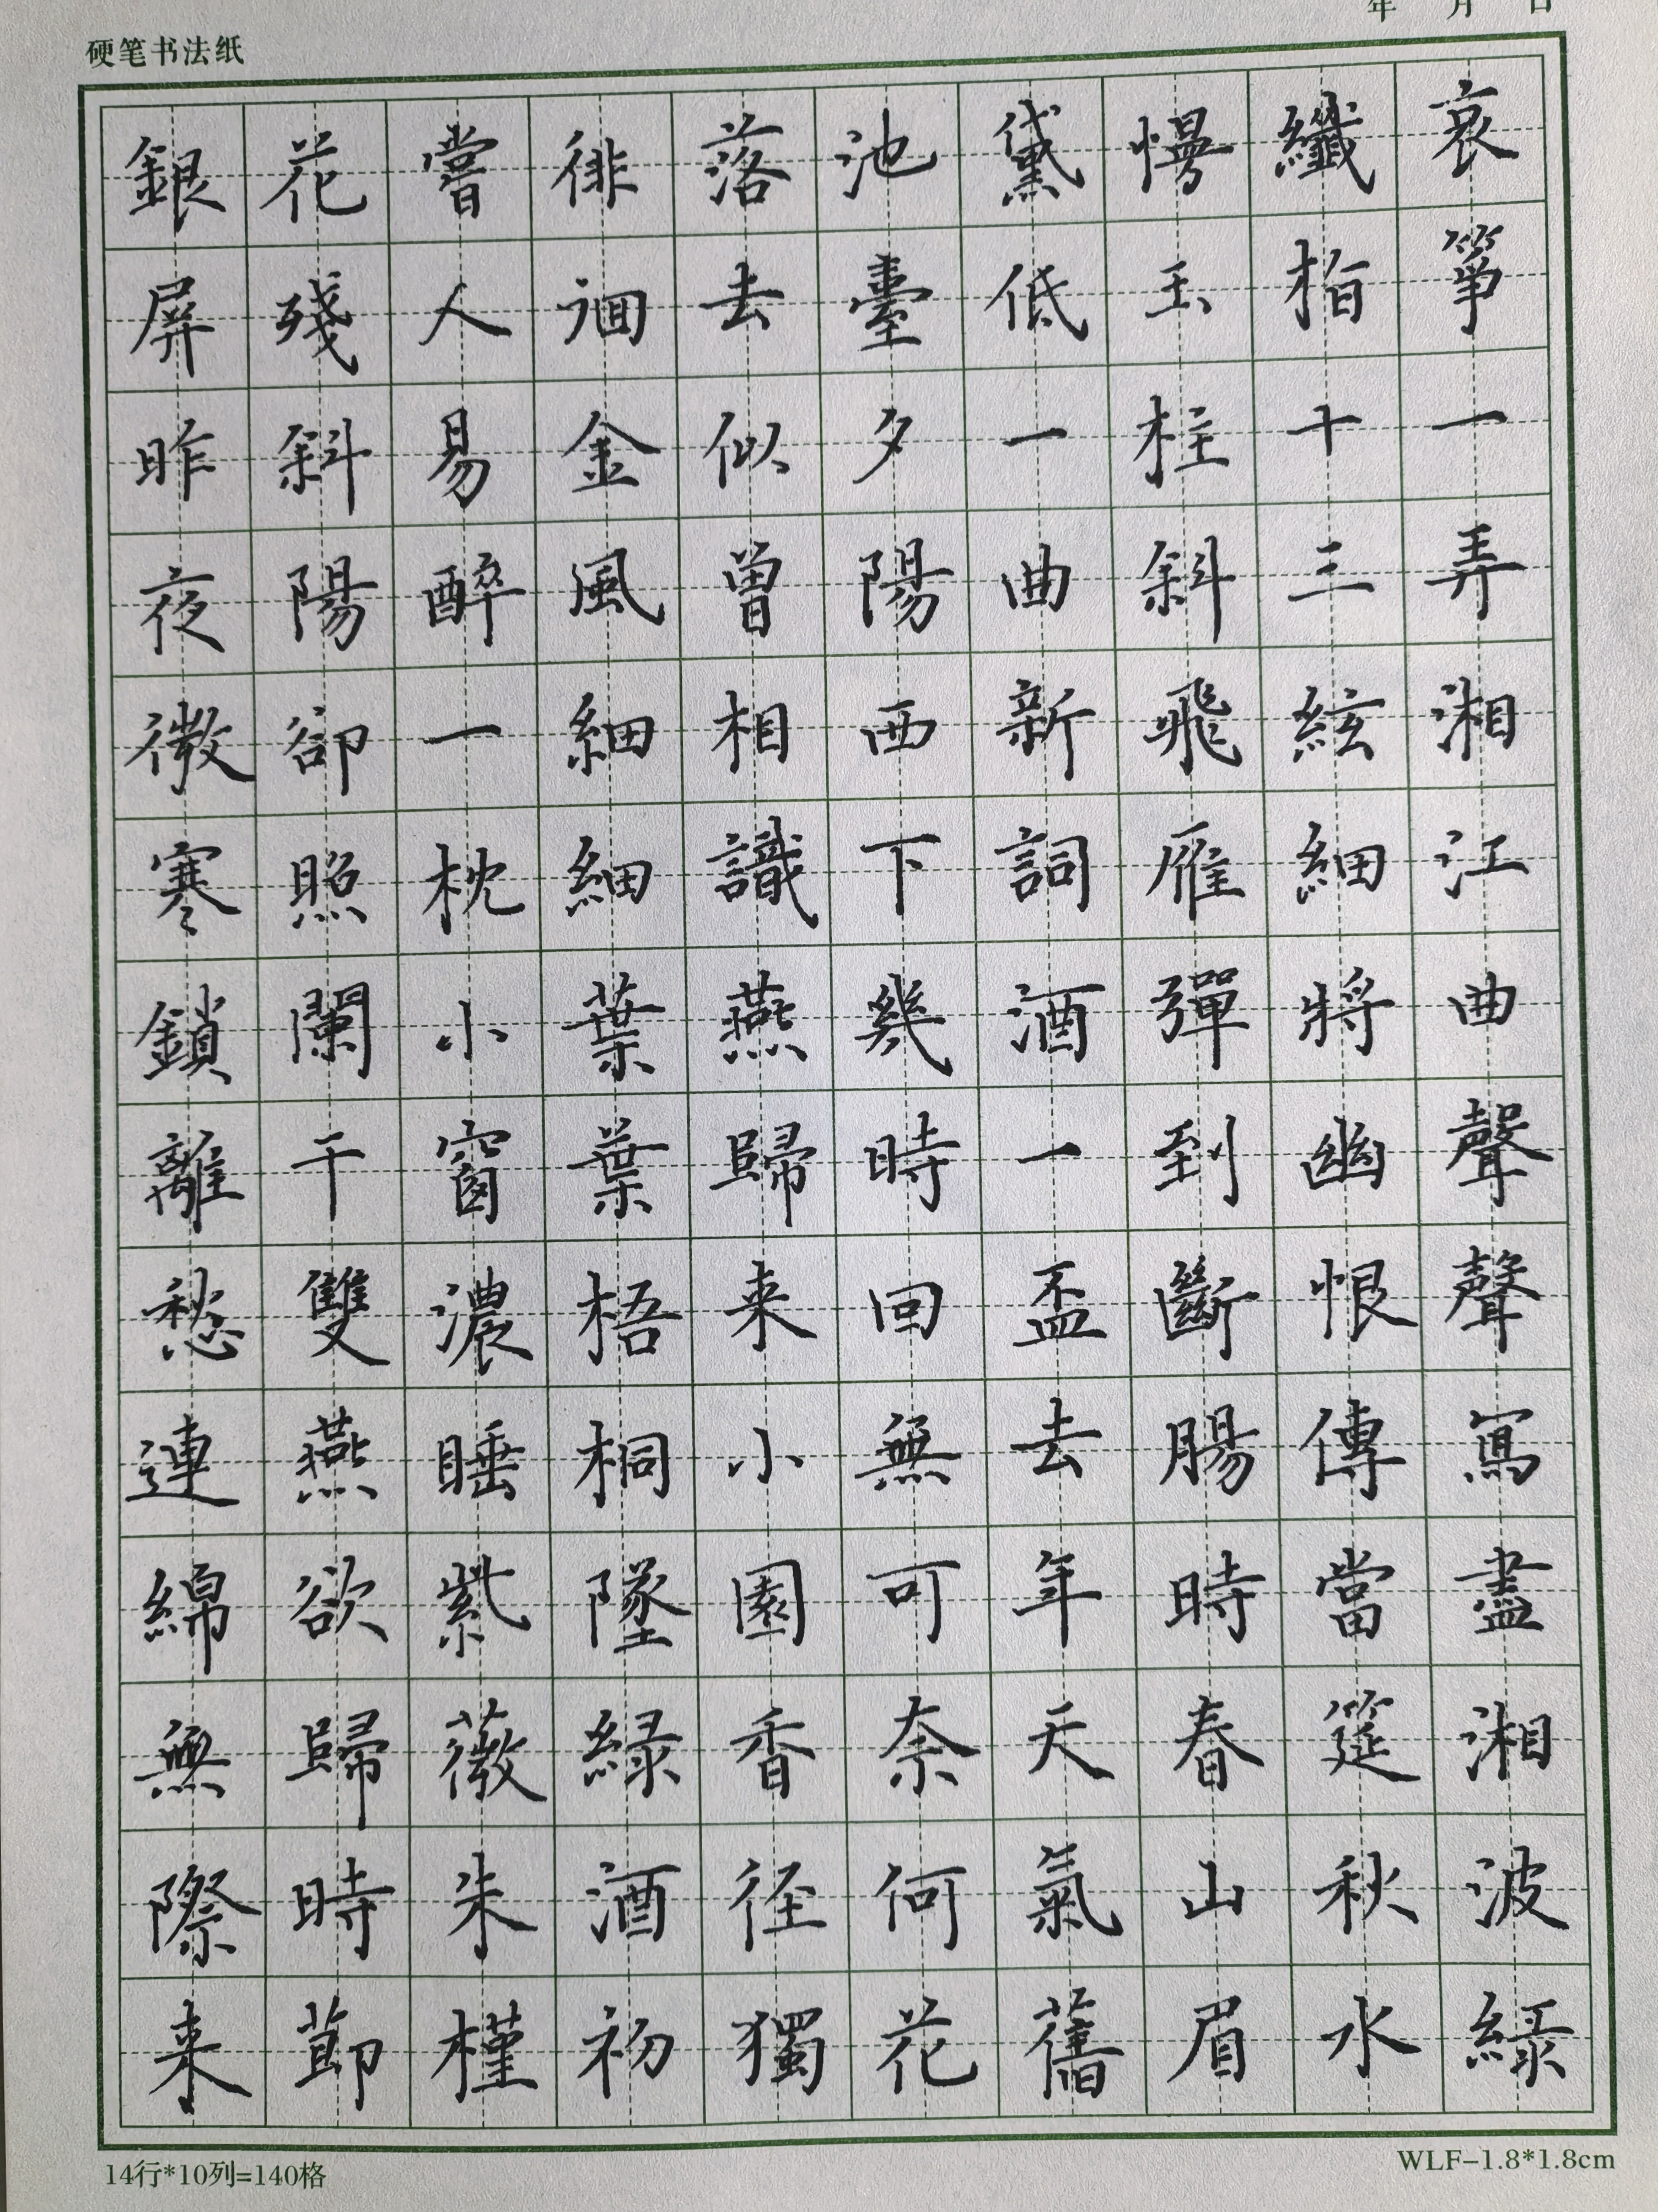 年 月 日
硬笔书法纸
哀箏一弄湘江曲聲聲寫盡湘波綠
纖指十三絃細將幽恨傳當筵秋水
慢玉柱斜飛雁彈到斷腸時春山眉
黛低一曲新詞酒一盃去年天氣舊
池臺夕陽西下幾時回無可奈何花
落去似曾相識燕歸来小園香徑獨
徘徊金風細細葉葉梧桐墜綠酒初
嘗人易醉一枕小窗濃睡紫薇朱槿
花殘斜陽卻照闌干雙燕欲歸時節
銀屏昨夜微寒鎖離愁連綿無際来
14行*10列=140格
WLF-1.8*1.8cm